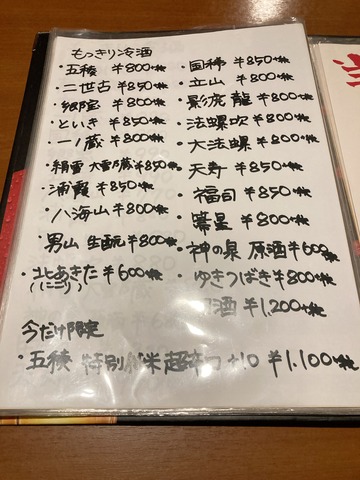 もっきり冷酒
・五稜 ¥800+税
・二世古 ¥800+税
・郷宝 ¥800+税
・といき ¥850+税
・一ノ蔵 ¥800+税
・絹雪 大雪乃蔵 ¥850+税
・浦霞 ¥850+税
・八海山 ¥800+税
・男山 生酛 ¥800+税
・北あきた ¥600+税
(にごり)
・国稀 ¥850+税
・立山 ¥800+税
・影虎 龍 ¥800+税
・法螺吹 ¥800+税
・大法螺 ¥800+税
・天寿 ¥850+税
・福司 ¥850+税
・箒星 ¥800+税
・神の泉 原酒 ¥600+税
・ゆきつばき ¥800+税
酒 ¥1,200+税
今だけ限定
・五稜 特別純米 超辛口 +10 ¥1,100+税